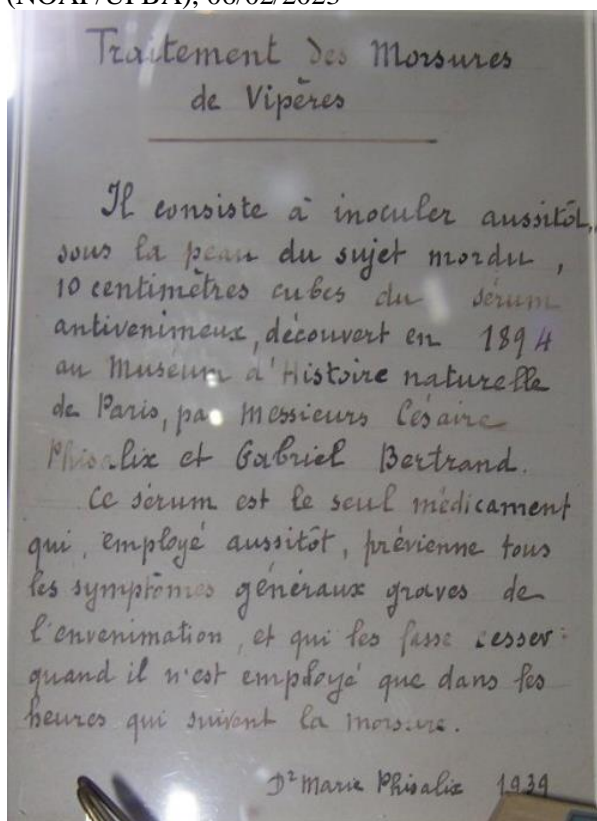 (NOAP/UFBA), 06/02/2023
Traitement des Morsures
de Vipères
Il consiste à inoculer aussitôt,
sous la peau du sujet mordu,
10 centimètres cubes du sérum
antivenimeux, découvert en 1894
au Museum d'Histoire naturelle
de Paris, par Messieurs Césaire
Phisalix et Gabriel Bertrand.
Ce sérum est le seul médicament
qui, employé aussitôt, prévienne tous
les symptômes généraux graves de
l'envenimation, et qui les fasse cesser
quand il n'est employé que dans les
heures qui suivent la morsure.
Dr Marie Phisalix 1939